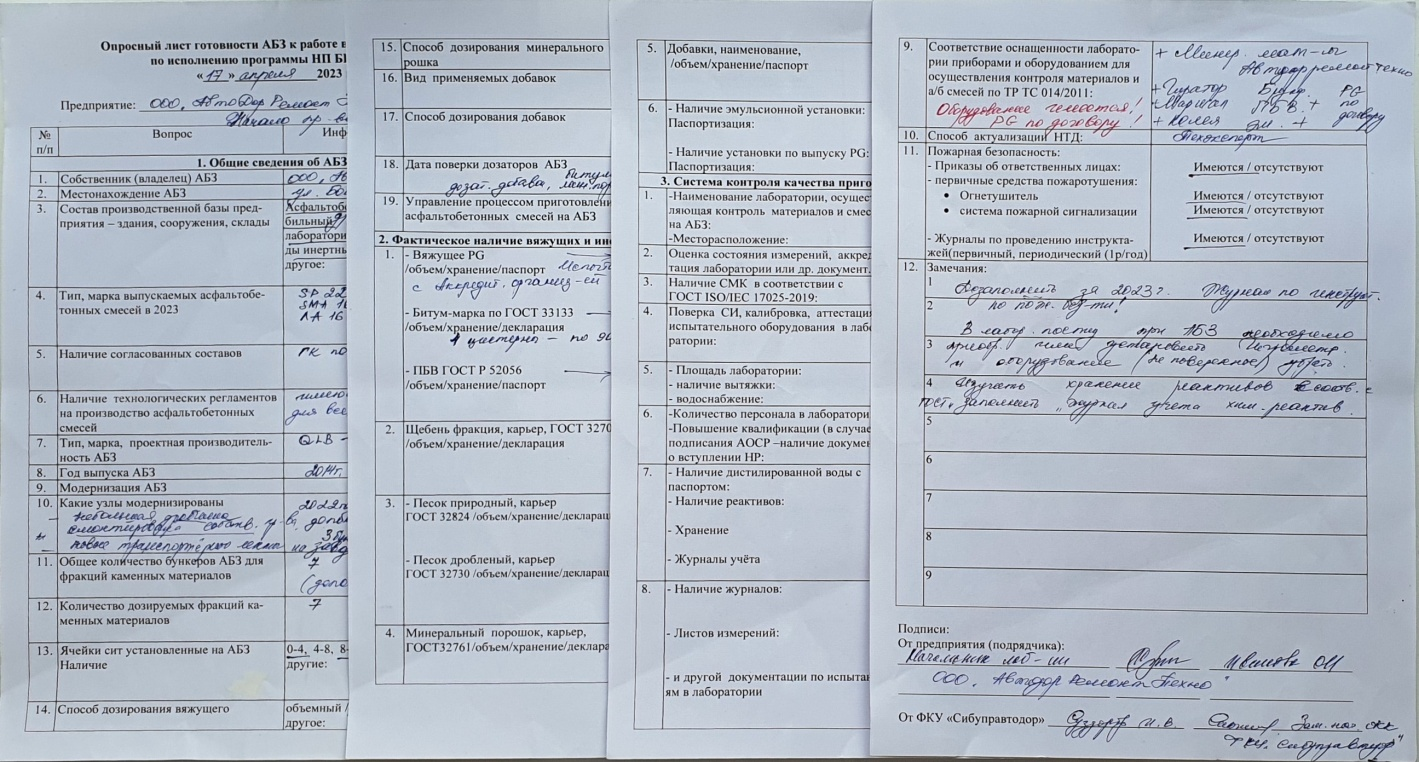 Опросный лист готовности АБЗ к работе в
по исполнению программы НП Б
«17» апреля 2023
Предприятие: ООО, АвтоДор Ремонт
Начало
№ п/п Вопрос Инф
1. Общие сведения об АБЗ
1. Собственник (владелец) АБЗ ООО, Ав
2. Местонахождение АБЗ ул.
3. Состав производственной базы пред- Асфальтоб
приятия – здания, сооружения, склады бильный
лаборатори
ды инертны
другое:
4. Тип, марка выпускаемых асфальтобе- SP 22
тонных смесей в 2023 SMA 16
ЛА 16
5. Наличие согласованных составов ГК по
6. Наличие технологических регламентов имею
на производство асфальтобетонных для все
смесей
7. Тип, марка, проектная производитель- QLB –
ность АБЗ
8. Год выпуска АБЗ 2014г.
9. Модернизация АБЗ
10. Какие узлы модернизированы 2022г
новые транспортёрные ленты на заво
11. Общее количество бункеров АБЗ для 7
фракций каменных материалов (допо
12. Количество дозируемых фракций ка- 7
менных материалов
13. Ячейки сит установленные на АБЗ 0-4, 4-8, 8-
Наличие другие:
14. Способ дозирования вяжущего объемный /
другое:
15. Способ дозирования минерального
рошка
16. Вид применяемых добавок
17. Способ дозирования добавок
18. Дата поверки дозаторов АБЗ битум
дозат. добавки, мин. пор
19. Управление процессом приготовлени
асфальтобетонных смесей на АБЗ
2. Фактическое наличие вяжущих и ин
1. - Вяжущее PG
/объем/хранение/паспорт
с Аккредит. организ-ей
- Битум-марка по ГОСТ 33133
/объем/хранение/декларация
1 цистерна – по 90
- ПБВ ГОСТ Р 52056
/объем/хранение/паспорт
2. Щебень фракция, карьер, ГОСТ 3270
/объем/хранение/декларация
3. - Песок природный, карьер
ГОСТ 32824 /объем/хранение/деклараци
- Песок дробленый, карьер
ГОСТ 32730 /объем/хранение/деклараци
4. Минеральный порошок, карьер,
ГОСТ32761/объем/хранение/деклара
5. Добавки, наименование,
/объем/хранение/паспорт
6. - Наличие эмульсионной установки:
Паспортизация:
- Наличие установки по выпуску PG:
Паспортизация:
3. Система контроля качества приго
1. -Наименование лаборатории, осущес
ляющая контроль материалов и смес
на АБЗ:
-Месторасположение:
2. Оценка состояния измерений, аккред
тация лаборатории или др. документ.
3. Наличие СМК в соответствии с
ГОСТ ISO/IEC 17025-2019:
4. Поверка СИ, калибровка, аттестаци
испытательного оборудования в лабо
ратории:
5. - Площадь лаборатории:
- наличие вытяжки:
- водоснабжение:
6. -Количество персонала в лаборатори
-Повышение квалификации (в случае
подписания АОСР –наличие докумен
о вступлении НР:
7. - Наличие дистилированной воды с
паспортом:
- Наличие реактивов:
- Хранение
- Журналы учёта
8. - Наличие журналов:
- Листов измерений:
- и другой документации по испытан
ям в лаборатории
9. Соответствие оснащенности лаборато- + Минер. мат-лы
рии приборами и оборудованием для Автодорремонт Техно
осуществления контроля материалов и + Гиратор Битум. PG
а/б смесей по ТР ТС 014/2011: + Маршал ПБВ. + по
Оборудование имеется! + Колея Эм. + договору
PG по договору!
10. Способ актуализации НТД: Техэксперт
11. Пожарная безопасность:
- Приказы об ответственных лицах: Имеются / отсутствуют
- первичные средства пожаротушения:
• Огнетушитель Имеются / отсутствуют
• система пожарной сигнализации Имеются / отсутствуют
- Журналы по проведению инструкта- Имеются / отсутствуют
жей(первичный, периодический (1р/год)
12. Замечания:
1 Дозаполнить за 2023 г. Журнал по инструкт.
2 по пож. без-ти!
В лабор. постид при АБЗ необходимо
3 приобр. или установить
и оборудование (не поверенное) убрать.
4 Изучить хранение реактивов в соотв. с
ГОСТ, заполнить „Журнал учета хим-реактив.
5
6
7
8
9
Подписи:
От предприятия (подрядчика):
Начальник лаб-ии Ивлева ОН
ООО, АвтодорРемонтТехно"
От ФКУ «Сибуправтодор» Зам. нач. СКК
ФКУ „Сибуправтодор"